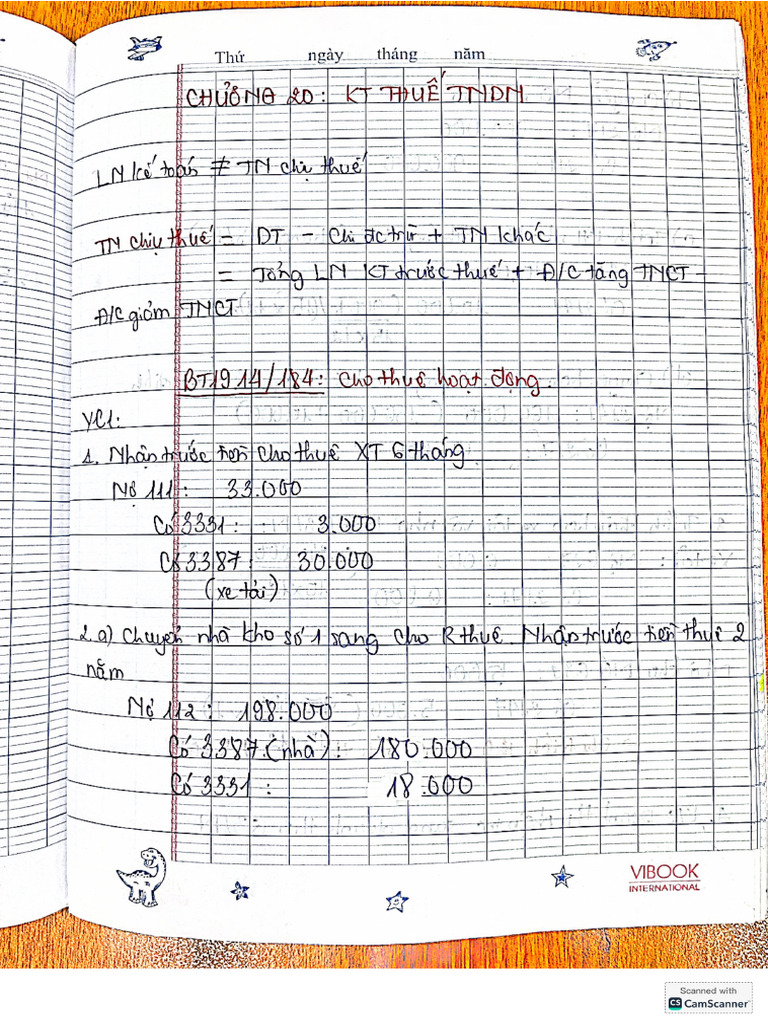 Thứ ngày tháng năm
CHƯƠNG 20: KT THUẾ TNDN
LN kế toán ≠ TN chịu thuế
TN chịu thuế = DT - Chi đc trừ + TN khác
= Tổng LN KT trước thuế + Đ/C tăng TNCT -
Đ/C giảm TNCT
BT19 14/184: Cho thuê hoạt động
YC1:
1. Nhận trước tiền cho thuê XT 6 tháng
Nợ 111: 33.000
Có 3331: 3.000
Có 3387: 30.000
(xe tải)
2.a) Chuyển nhà kho số 1 sang cho R thuê. Nhận trước tiền thuê 2
năm
Nợ 112: 198.000
Có 3387 (nhà): 180.000
Có 3331: 18.000
VIBOOK
INTERNATIONAL
Scanned with
CS CamScanner